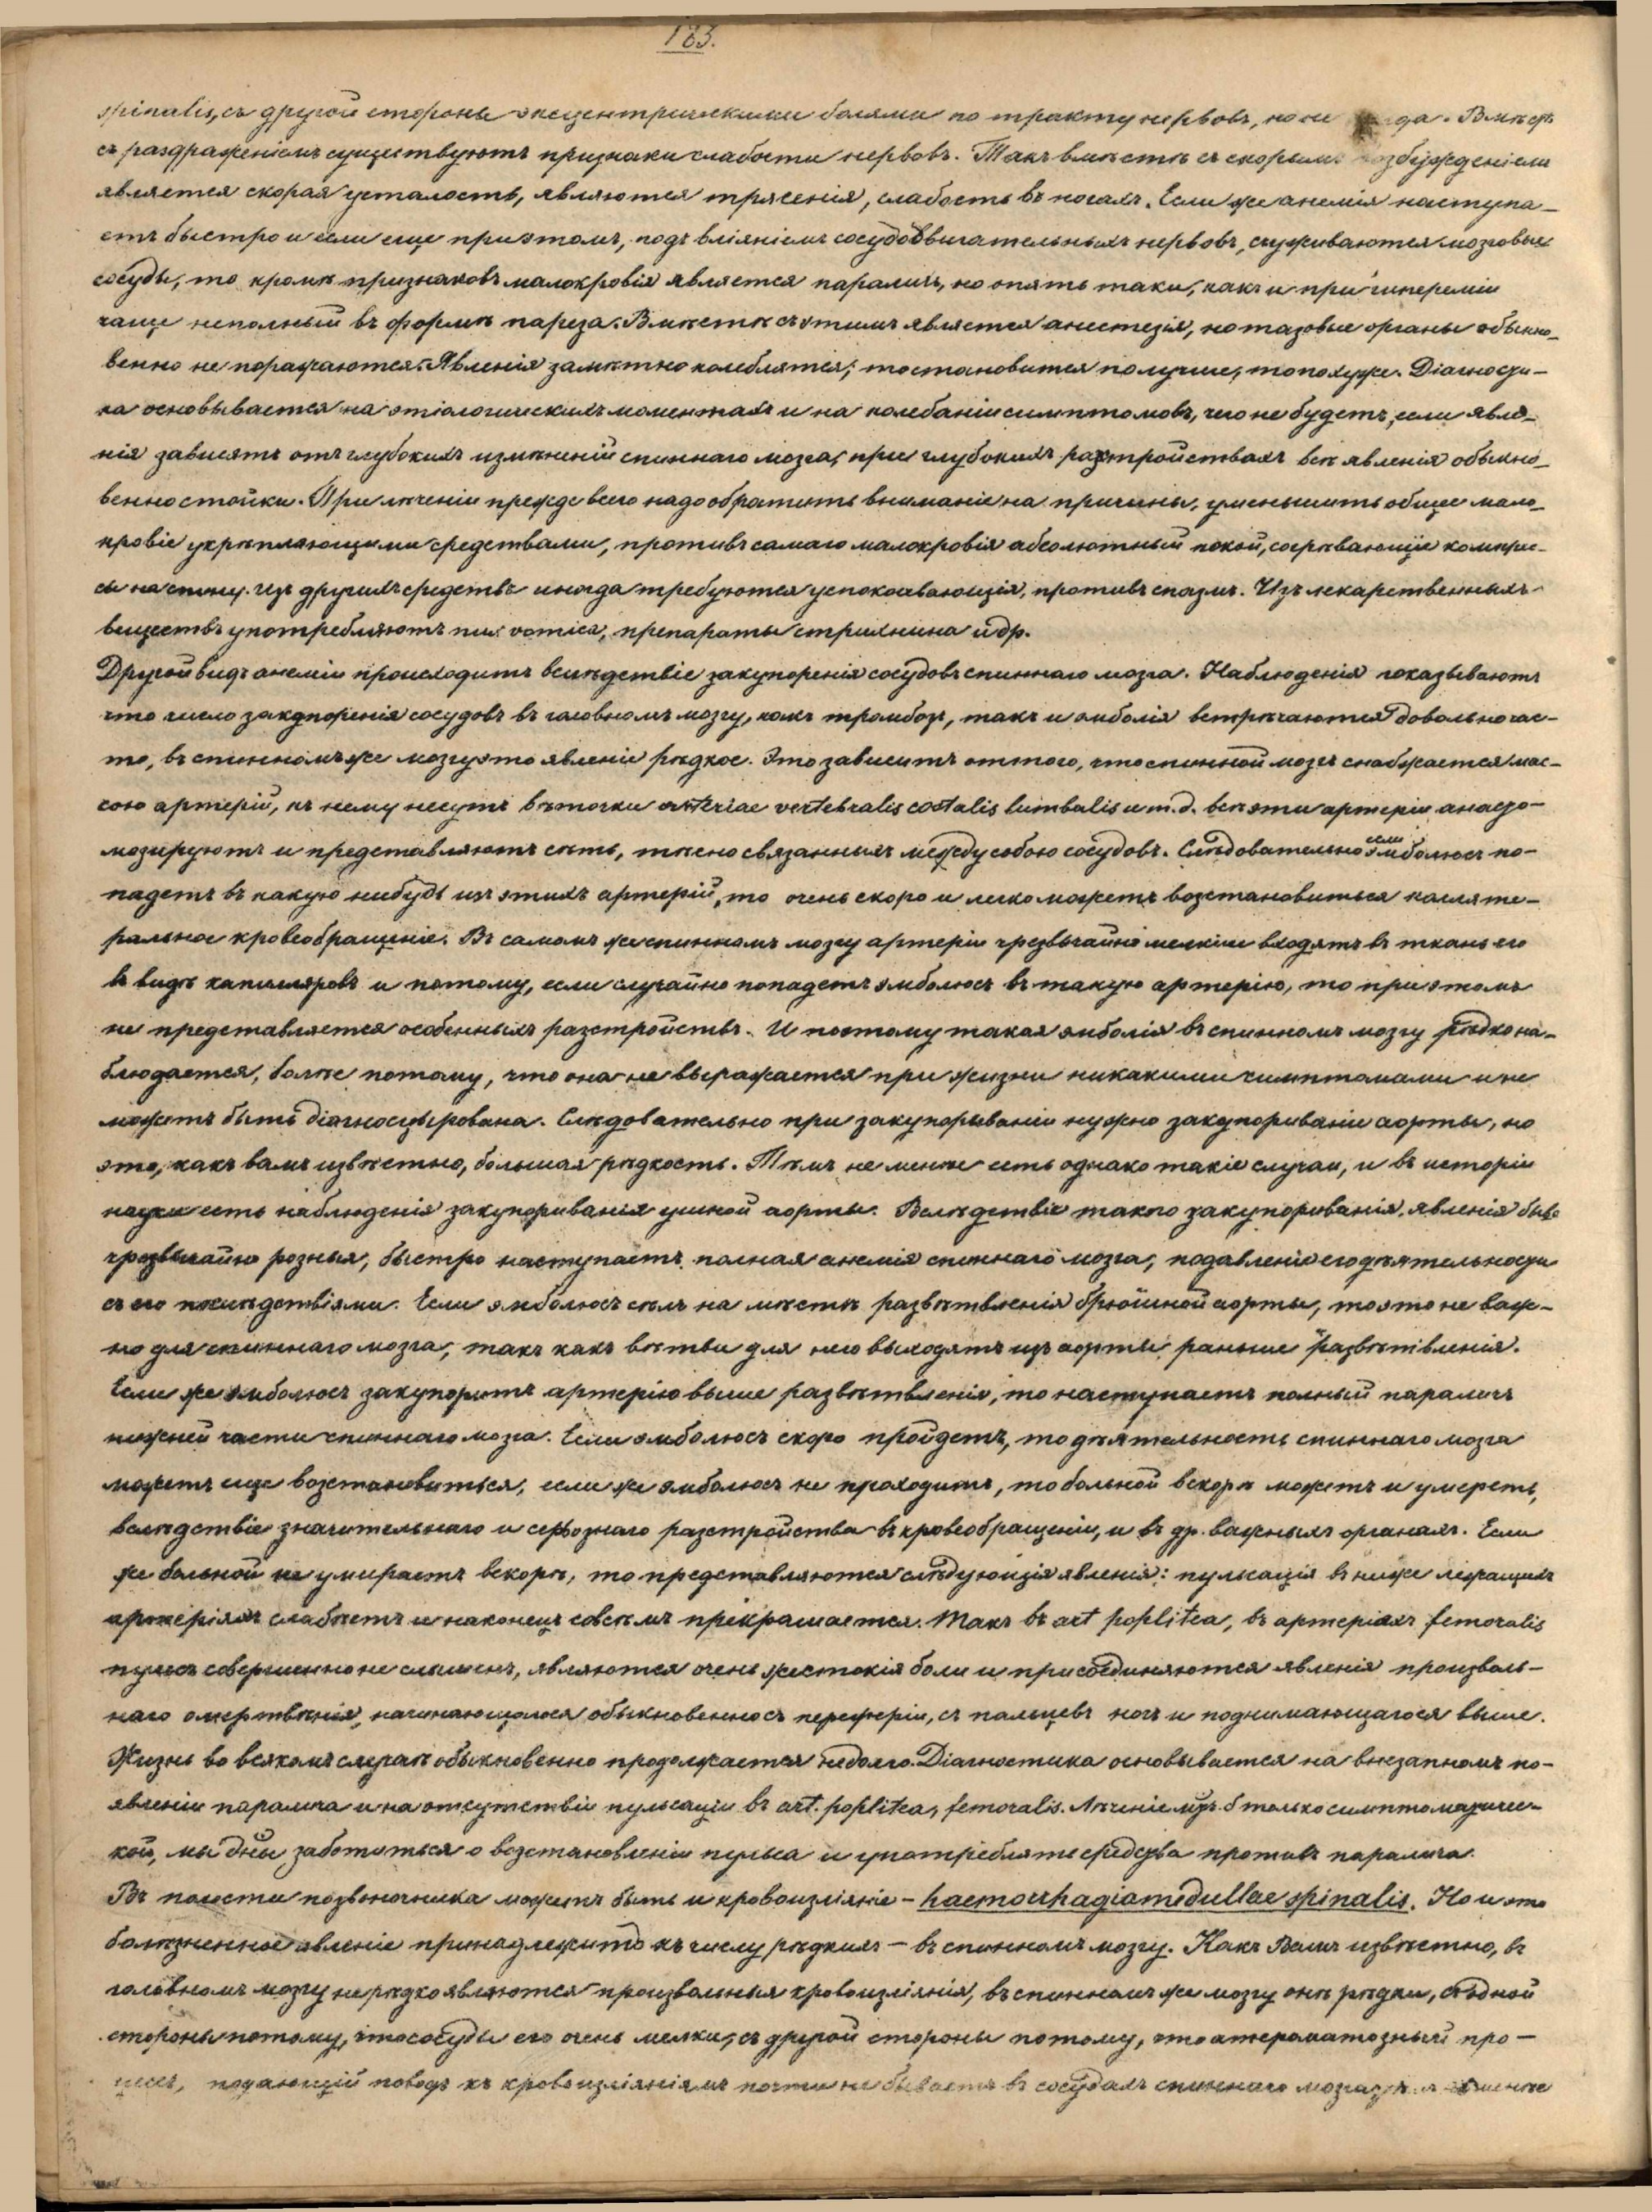 183.
spinalis, съ другой стороны эксцентрическими болями по тракту нервовъ, но не Вмѣстѣ
съ раздраженіемъ существуютъ признаки слабости нервовъ. Такъ вмѣстѣ съ скорымъ возбужденіемъ
является скорая усталость, являются трясенія, слабость въ ногахъ. Если же анемія наступа-
етъ быстро и если еще при этомъ, подъ вліяніемъ сосудодвигательныхъ нервовъ, съуживаются мозговые
сосуды, то кромѣ признаковъ малокровія является параличъ, но опять таки, какъ и при гипереміи
чаще неполный въ формѣ пареза. Вмѣстѣ съ этимъ является анестезія, но тазовые органы обыкно-
венно не поражаются. Явленія замѣтно колеблятся; то становится получше, то похуже. Діагности-
ка основывается на этіологическихъ моментахъ и на колебаніи симптомовъ, чего не будетъ, если явле-
нія зависятъ отъ глубокихъ измѣненій спиннаго мозга, при глубокихъ разстройствахъ всѣ явленія обыкно-
венно стойки. При лѣченіи прежде всего надо обратить вниманіе на причины, уменьшить общее мало-
кровіе укрѣпляющими средствами, противъ самаго малокровія абсолютный покой, согрѣвающіе компрес-
сы на спину. Изъ другихъ средствъ иногда требуются успокоивающія, противъ спазмъ. Изъ лекарственныхъ
веществъ употребляютъ nux vomica, препараты стрихнина и др.
Другой видъ анеміи происходитъ вслѣдствіе закупоренія сосудовъ спиннаго мозга. Наблюденія показываютъ
что число закупоренія сосудовъ въ головномъ мозгу, какъ тромбозъ, такъ и эмболія встрѣчаются довольно час-
то, въ спинномъ же мозгу это явленіе рѣдкое. Это зависитъ оттого, что спинной мозгъ снабжается мас-
сою артерій, къ нему несутъ вѣточки arteriae vertebralis costalis lumbalis и т.д. всѣ эти артеріи анасто-
мозируютъ и представляютъ сѣть, тѣсно связанныхъ между собою сосудовъ. Слѣдовательно если эмболюсъ по-
падетъ въ какую нибудь изъ этихъ артерій, то очень скоро и легко можетъ возстановиться коллате-
ральное кровеобращеніе. Въ самомъ же спинномъ мозгу артеріи чрезвычайно мелкіи входятъ въ ткань его
въ видѣ капилляровъ и потому, если случайно попадетъ эмболюсъ въ такую артерію, то при этомъ
не представляется особенныхъ разстройствъ. И поэтому такая эмболія въ спинномъ мозгу рѣдко на-
блюдается, болѣе потому, что она не выражается при жизни никакими симптомами и не
можетъ быть діагносцирована. Слѣдовательно при закупорываніи нужно закупориваніе аорты, но
это, какъ вамъ извѣстно, большая рѣдкость. Тѣмъ не менѣе есть однако такіе случаи, и въ исторіи
науки есть наблюденія закупориванія ушной аорты. Вслѣдствіе такого закупориванія, явленія быв.
чрезвычайно розныя, быстро наступаетъ полная анемія спиннаго мозга, подавленіе его дѣятельности
съ его послѣдствіями. Если эмболюсъ сѣлъ на мѣстѣ развѣтвленія брюшной аорты, то это не важ-
но для спиннаго мозга, такъ какъ вѣтви для него выходятъ изъ аорты раньше развѣтвленія.
Если же эмболюсъ закупоритъ артерію выше развѣтвленія, то наступаетъ полный параличъ
нижней части спиннаго мозга. Если эмболюсъ скоро пройдетъ, то дѣятельность спиннаго мозга
можетъ еще возстановиться, если же эмболюсъ не проходитъ, то больной вскорѣ можетъ и умереть,
вслѣдствіе значительнаго и серьознаго разстройства въ кровеобращеніи, и въ др. важныхъ органахъ. Если
же больной не умираетъ вскорѣ, то представляются слѣдующія явленія: пульсація въ ниже лежащихъ
артеріяхъ слабѣетъ и наконецъ совсѣмъ прекращается. Такъ въ art poplitea, въ артеріяхъ femoralis
пульсъ совершенно не слышенъ, являются очень жестокія боли и присоединяются явленія произволь-
наго омертвѣнія, начинающагося обыкновенно съ перефреріи, съ пальцевъ ногъ и поднимающагося выше.
Жизнь во всякомъ случаѣ обыкновенно продолжается недолго. Діагностика основывается на внезапномъ по-
явленіи паралича и на отсутствіи пульсаціи въ art. poplitea, femoralis. Лѣченіе мож. б только симптоматичес-
кой, мы дны заботиться о возстановленіи пульса и употреблять средства противъ паралича.
Въ полости позвоночника можетъ быть и кровоизліяніе - haemorrhagia medullae spinalis. Но и это
болѣзненное явленіе принадлежитъ къ числу рѣдкихъ - въ спинномъ мозгу. Какъ Вамъ извѣстно, въ
головномъ мозгу нерѣдко являются произвольныя кровоизліянія, въ спинномъ же мозгу онѣ рѣдки, съ одной
стороны потому, что сосуды его очень мелки, съ другой стороны потому, что атероматозный про-
цессъ, подающій поводъ къ кровоизліяніямъ почти не бываетъ въ сосудахъ спиннаго мозга